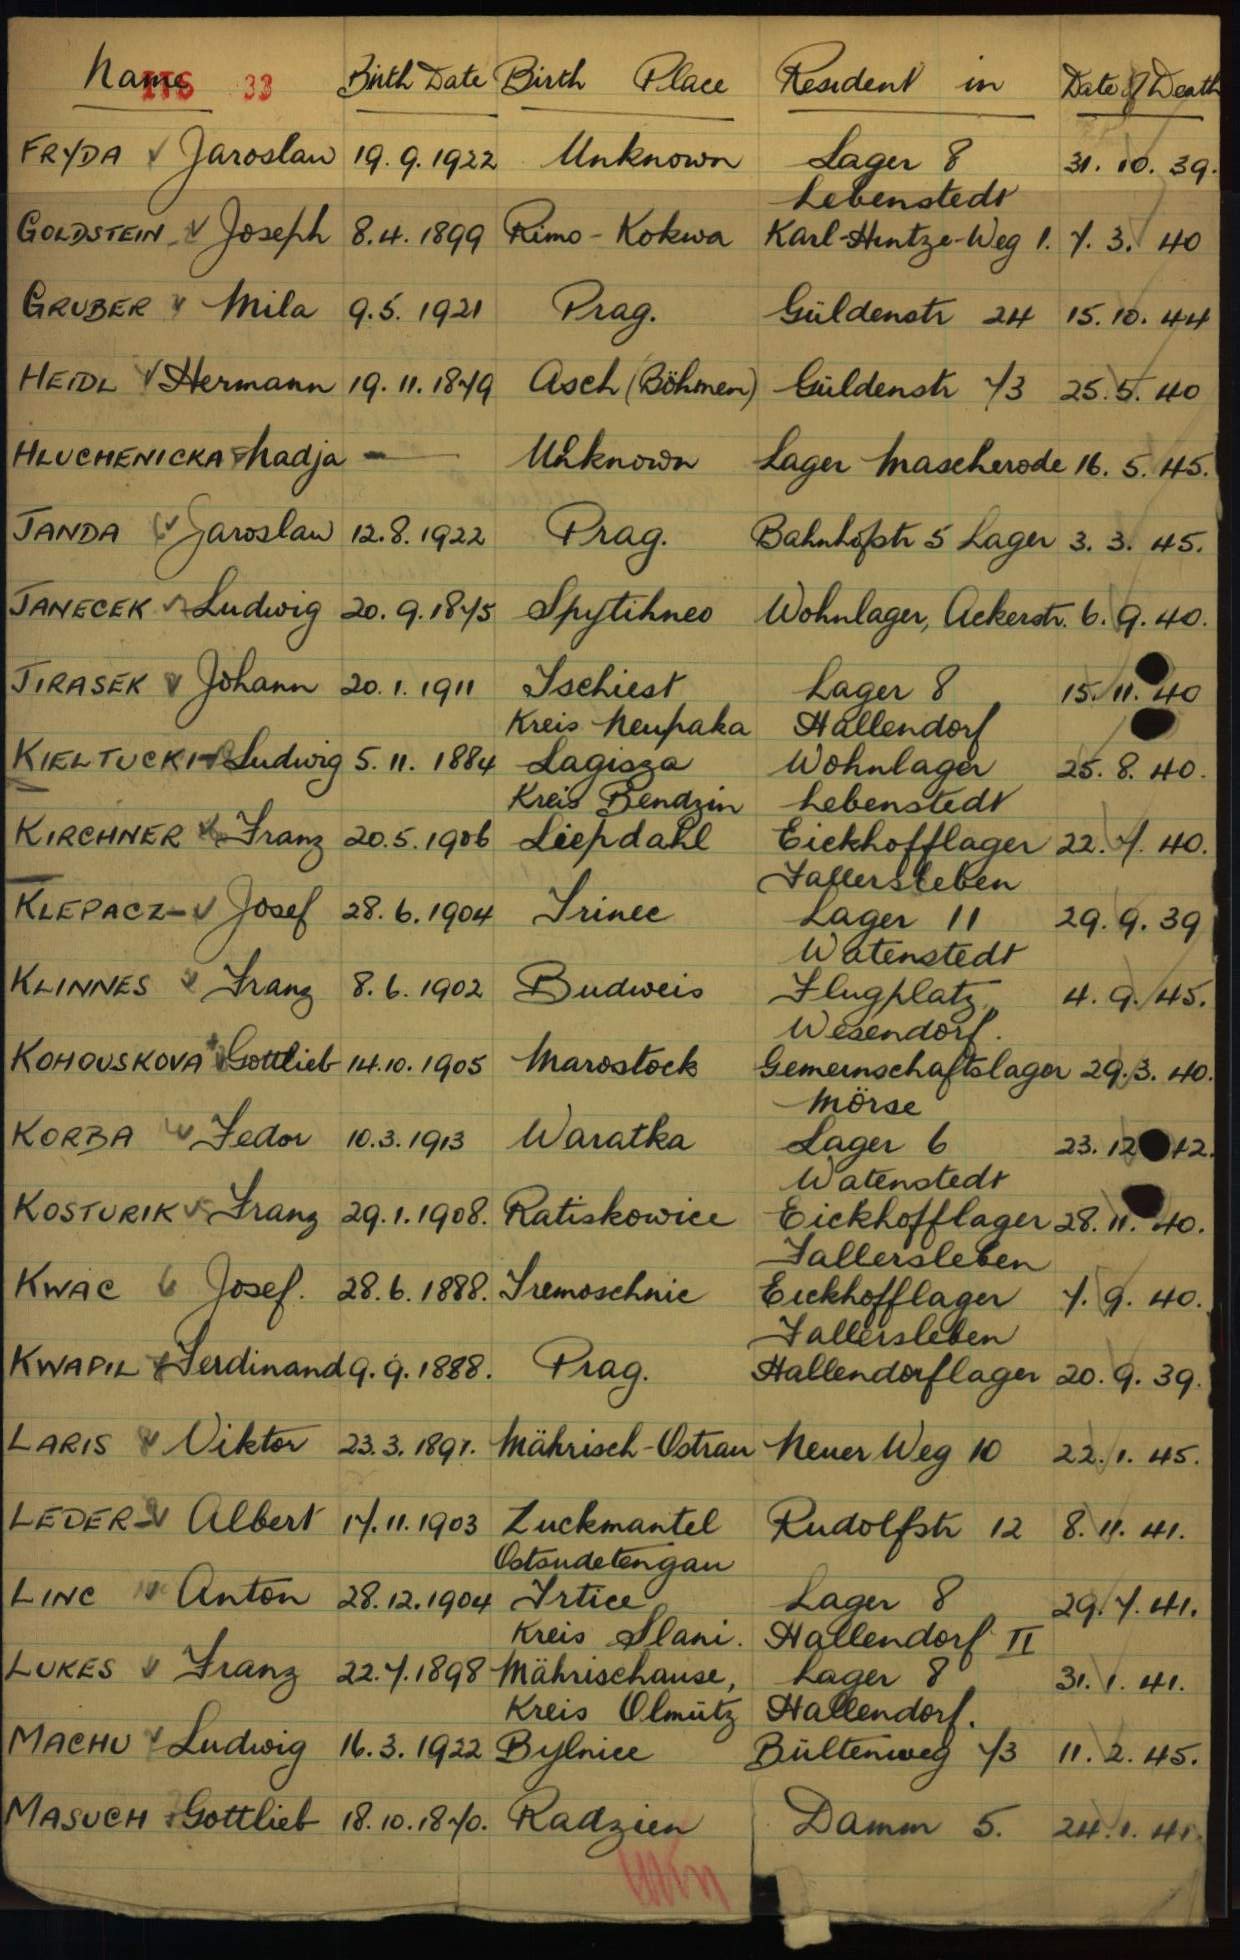 Name Birth Date Birth Place Resident in Date of Death
ITS 33
FRYDA Jaroslaw 19.9.1922 Unknown Lager 8 31.10.39.
Lebenstedt
GOLDSTEIN Joseph 8.4.1899 Rimo-Kokwa Karl-Hintze-Weg 1. 7.3.40
GRUBER Mila 9.5.1921 Prag. Güldenstr 24 15.10.44
HEIDL Hermann 19.11.1879 Asch (Böhmen) Güldenstr 73 25.5.40
HLUCHENICKA Nadja — Unknown Lager Mascherode 16.5.45.
JANDA Jaroslaw 12.8.1922 Prag. Bahnhofstr 5 Lager 3.3.45.
JANECEK Ludwig 20.9.1875 Spytihneo Wohnlager, Ackerstr. 6.9.40.
JIRASEK Johann 20.1.1911 Tschiest Lager 8 15.11.40
Kreis Neupaka Hallendorf
KIELTUCKI Ludwig 5.11.1884 Lagisza Wohnlager 25.8.40.
Kreis Bendzin Lebenstedt
KIRCHNER Franz 20.5.1906 Liepdahl Eickhofflager 22.7.40.
Fallersleben
KLEPACZ Josef 28.6.1904 Trinec Lager 11 29.9.39
Watenstedt
KLINNES Franz 8.6.1902 Budweis Flugplatz 4.9.45.
Wesendorf.
KOHOUSKOVA Gottlieb 14.10.1905 Marostock Gemeinschaftslager 29.3.40.
Mörse
KORBA Fedor 10.3.1913 Waratka Lager 6 23.12 42.
Watenstedt
KOSTURIK Franz 29.1.1908. Ratiskowice Eickhofflager 28.11.40.
Fallersleben
KWAC Josef. 28.6.1888. Tremoschnic Eickhofflager 7.9.40.
Fallersleben
KWAPIL Ferdinand 9.9.1888. Prag. Hallendorflager 20.9.39.
LARIS Viktor 23.3.1897. Mährisch-Ostrau Neuer Weg 10 22.1.45.
LEDER Albert 17.11.1903 Zuckmantel Rudolfstr 12 8.11.41.
Ostsudetengau
LINC Anton 28.12.1904 Trtice Lager 8 29.7.41.
Kreis Slani. Hallendorf II
LUKES Franz 22.7.1898 Mährischause, Lager 8 31.1.41.
Kreis Olmütz Hallendorf.
MACHU Ludwig 16.3.1922 Bylnice Bültenweg 73 11.2.45.
MASUCH Gottlieb 18.10.1870. Radzien Damm 5. 24.1.41.